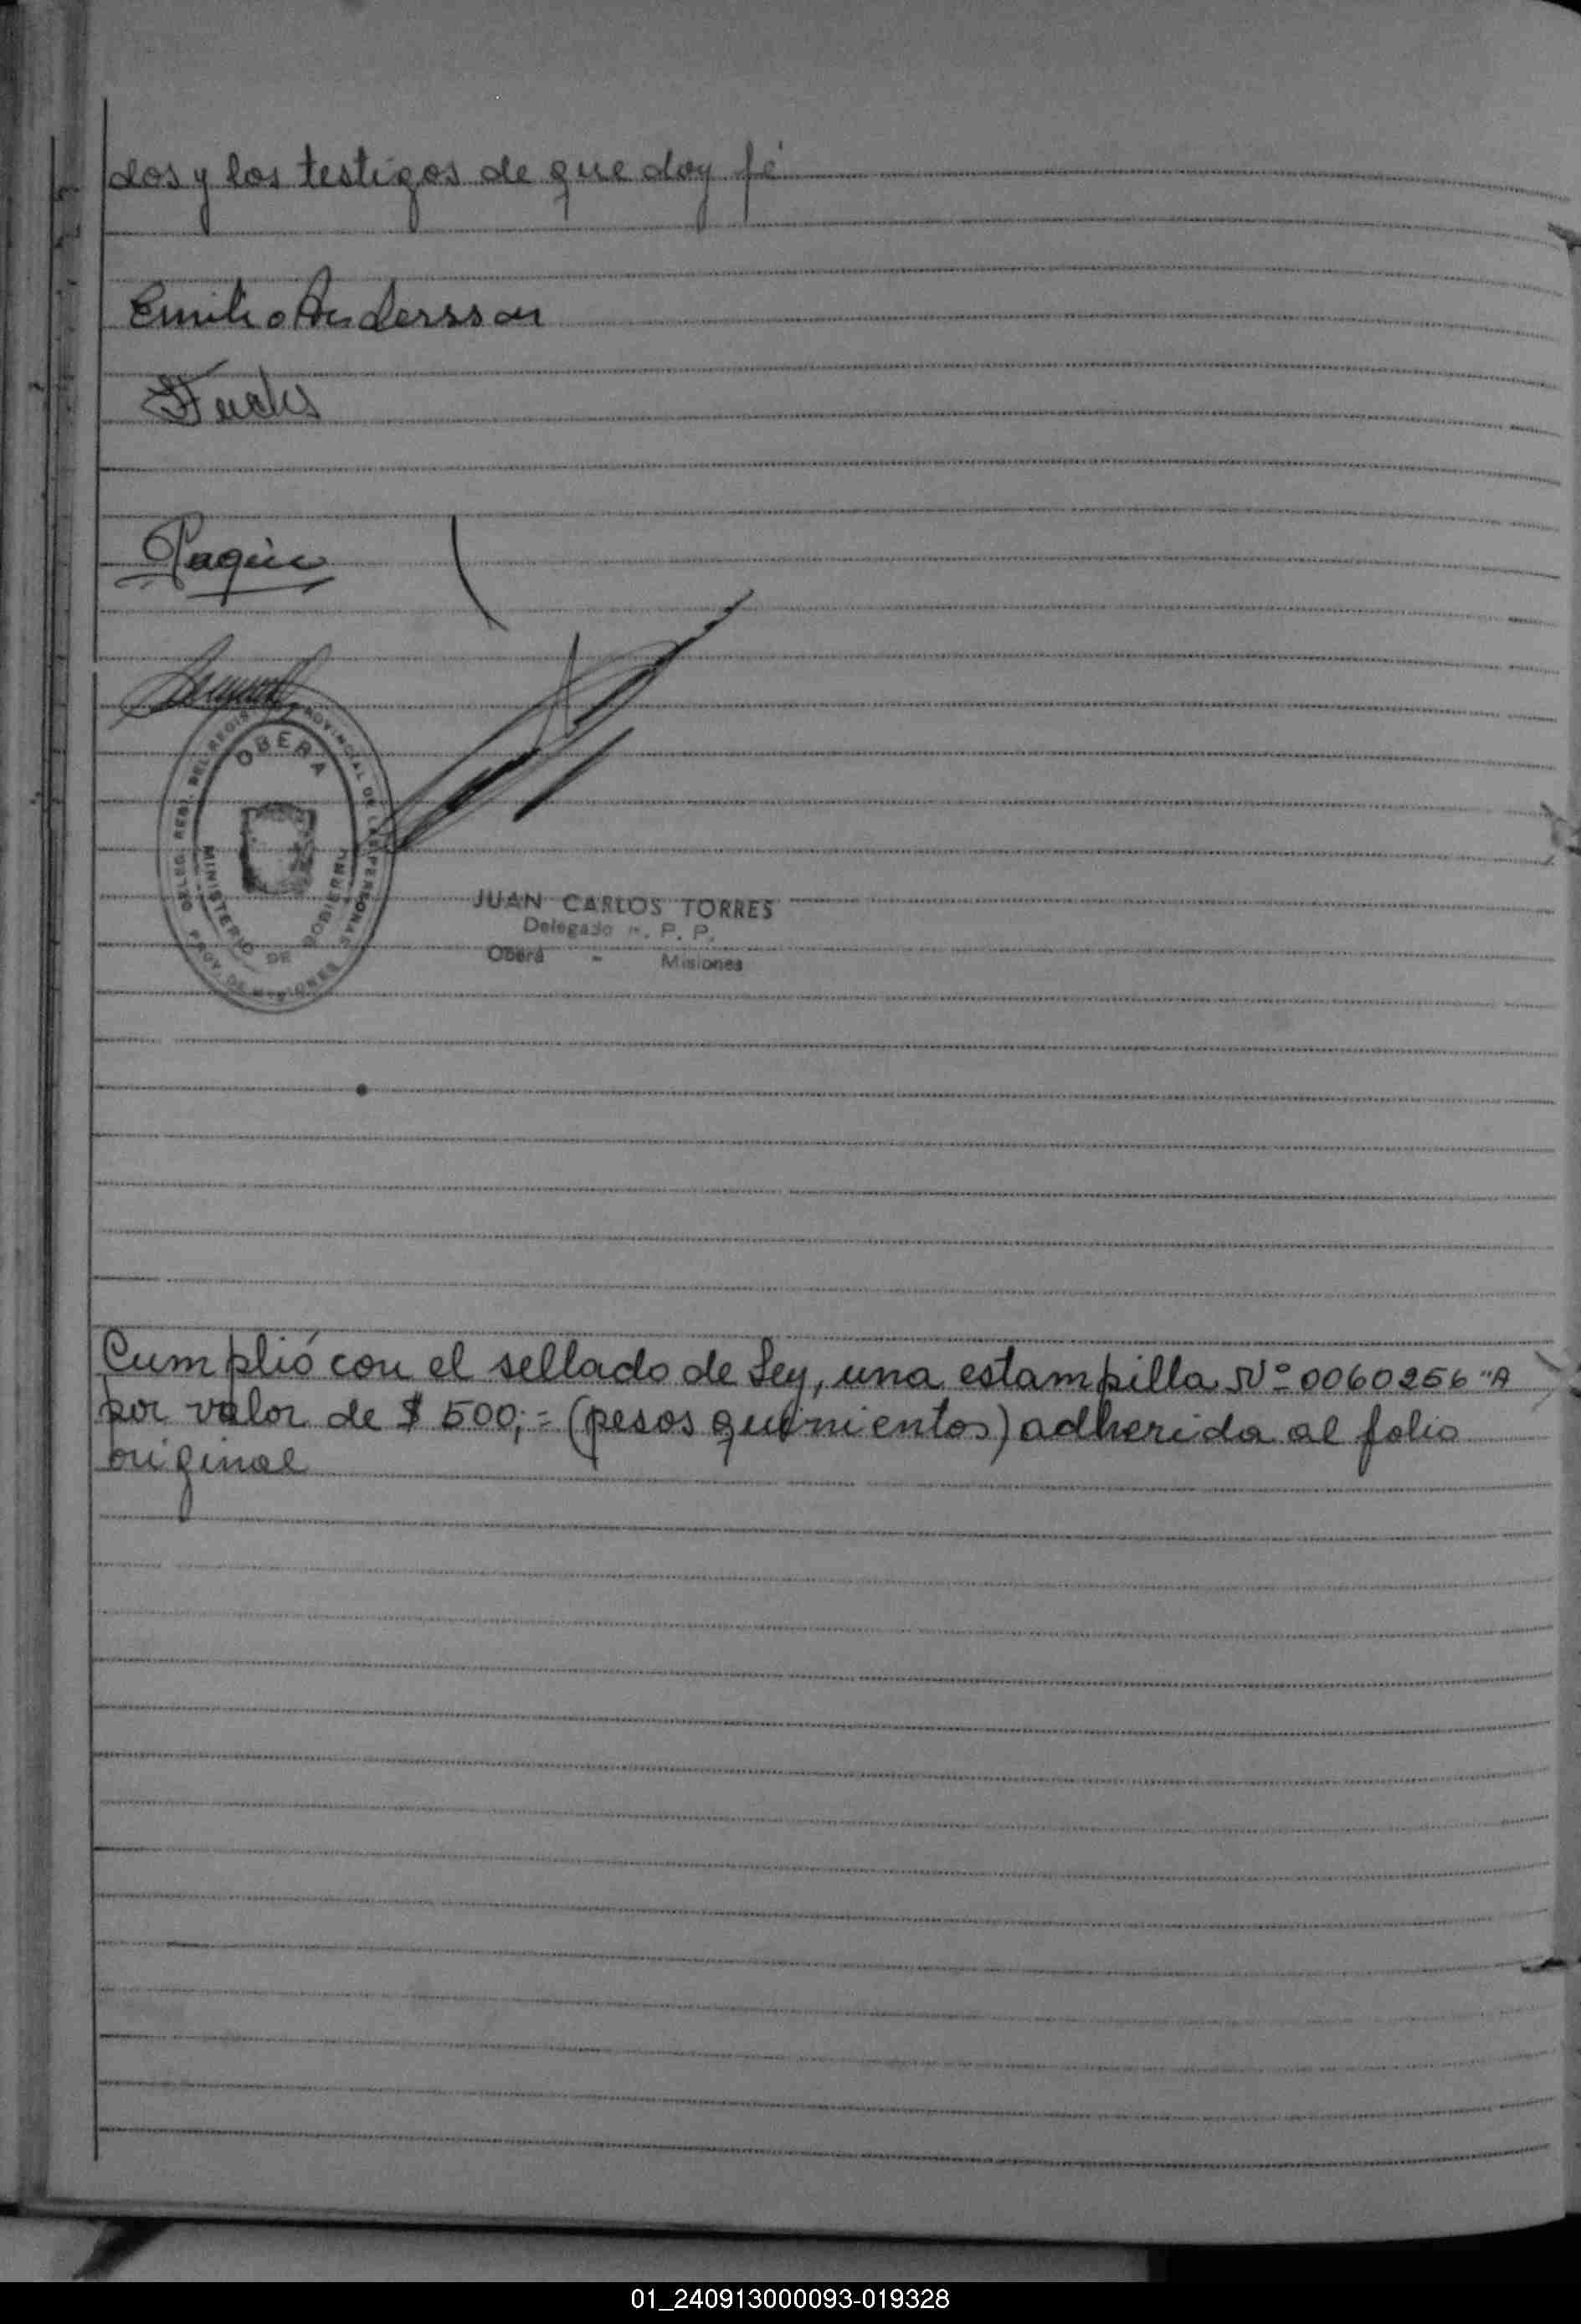 dos y los testigos de que doy fé
Emilio Andersson
Fuchs
DELEG. REGI. DEL REGISTRO PROVINCIAL DE LAS PERSONAS
OBERA
MINISTERIO DE GOBIERNO
PROV. DE MISIONES
JUAN CARLOS TORRES
Delegado R. P. P.
Oberá - Misiones
Cumplió con el sellado de Ley, una estampilla Nº 0060256 "A
por valor de $ 500,= (pesos quinientos) adherida al folio
original
01_240913000093-019328